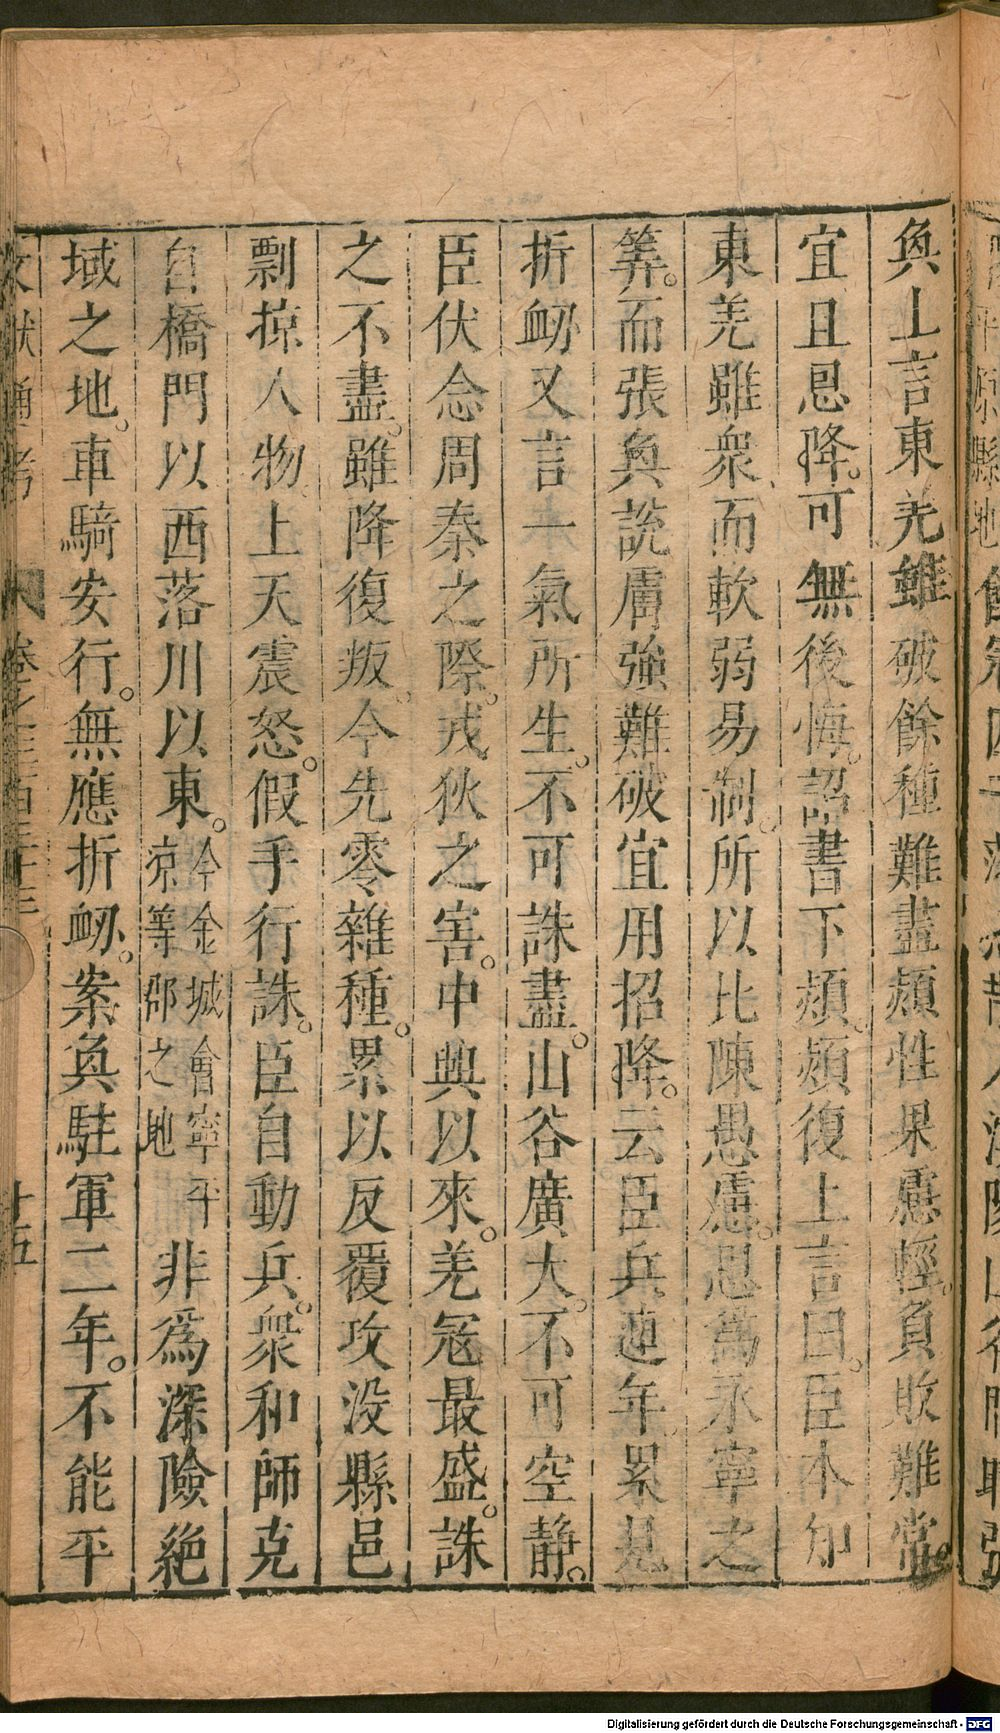 奐上言東羌雖破餘種難盡熲性果慮輕負敗難常
宜且思降。可無後悔。詔書下熲。熲復上言曰。臣本知
東羌雖衆而軟弱易制。所以比陳愚慮。思為永寧之
筭。而張奐說虜強難破宜用招降。云臣兵連年累見
折衂又言一氣所生。不可誅盡。山谷廣大。不可空静。
臣伏念周秦之際。戎狄之害。中興以來。羌冦最盛。誅
之不盡。雖降復叛。今先零雜種。累以反覆攻没縣邑
剽掠人物。上天震怒。假手行誅。臣自動兵。衆和師克
自橋門以西落川以東。今金城會寧平凉等郡之地非為深險絶
域之地。車騎安行。無應折衂。案奐駐軍二年。不能平
文獻通考 卷之三百三十三 十五
Digitalisierung gefördert durch die Deutsche Forschungsgemeinschaft - DFG